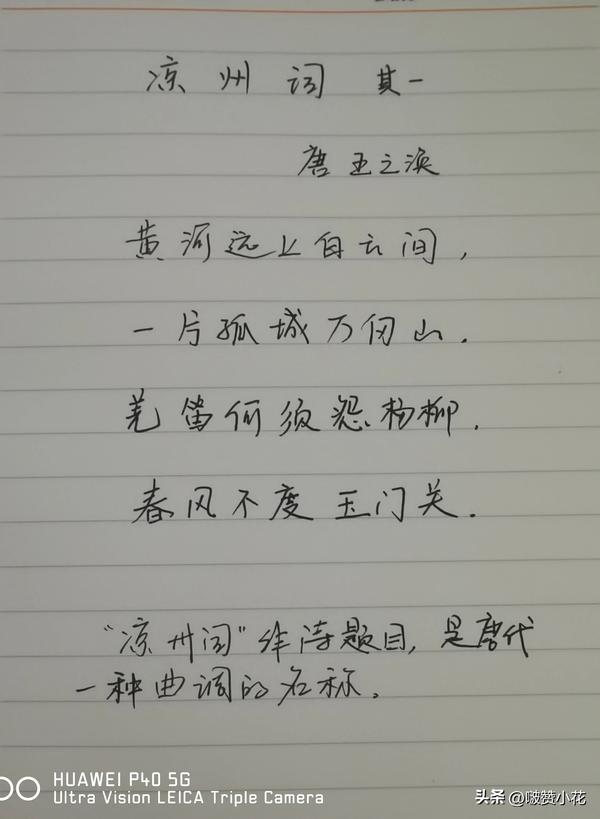 凉州词 其一
唐 王之涣
黄河远上白云间，
一片孤城万仞山．
羌笛何须怨杨柳．
春风不度玉门关．
“凉州词”绯诗题目，是唐代
一种曲调的名称．
HUAWEI P40 5G
Ultra Vision LEICA Triple Camera
头条 @啵赞小花